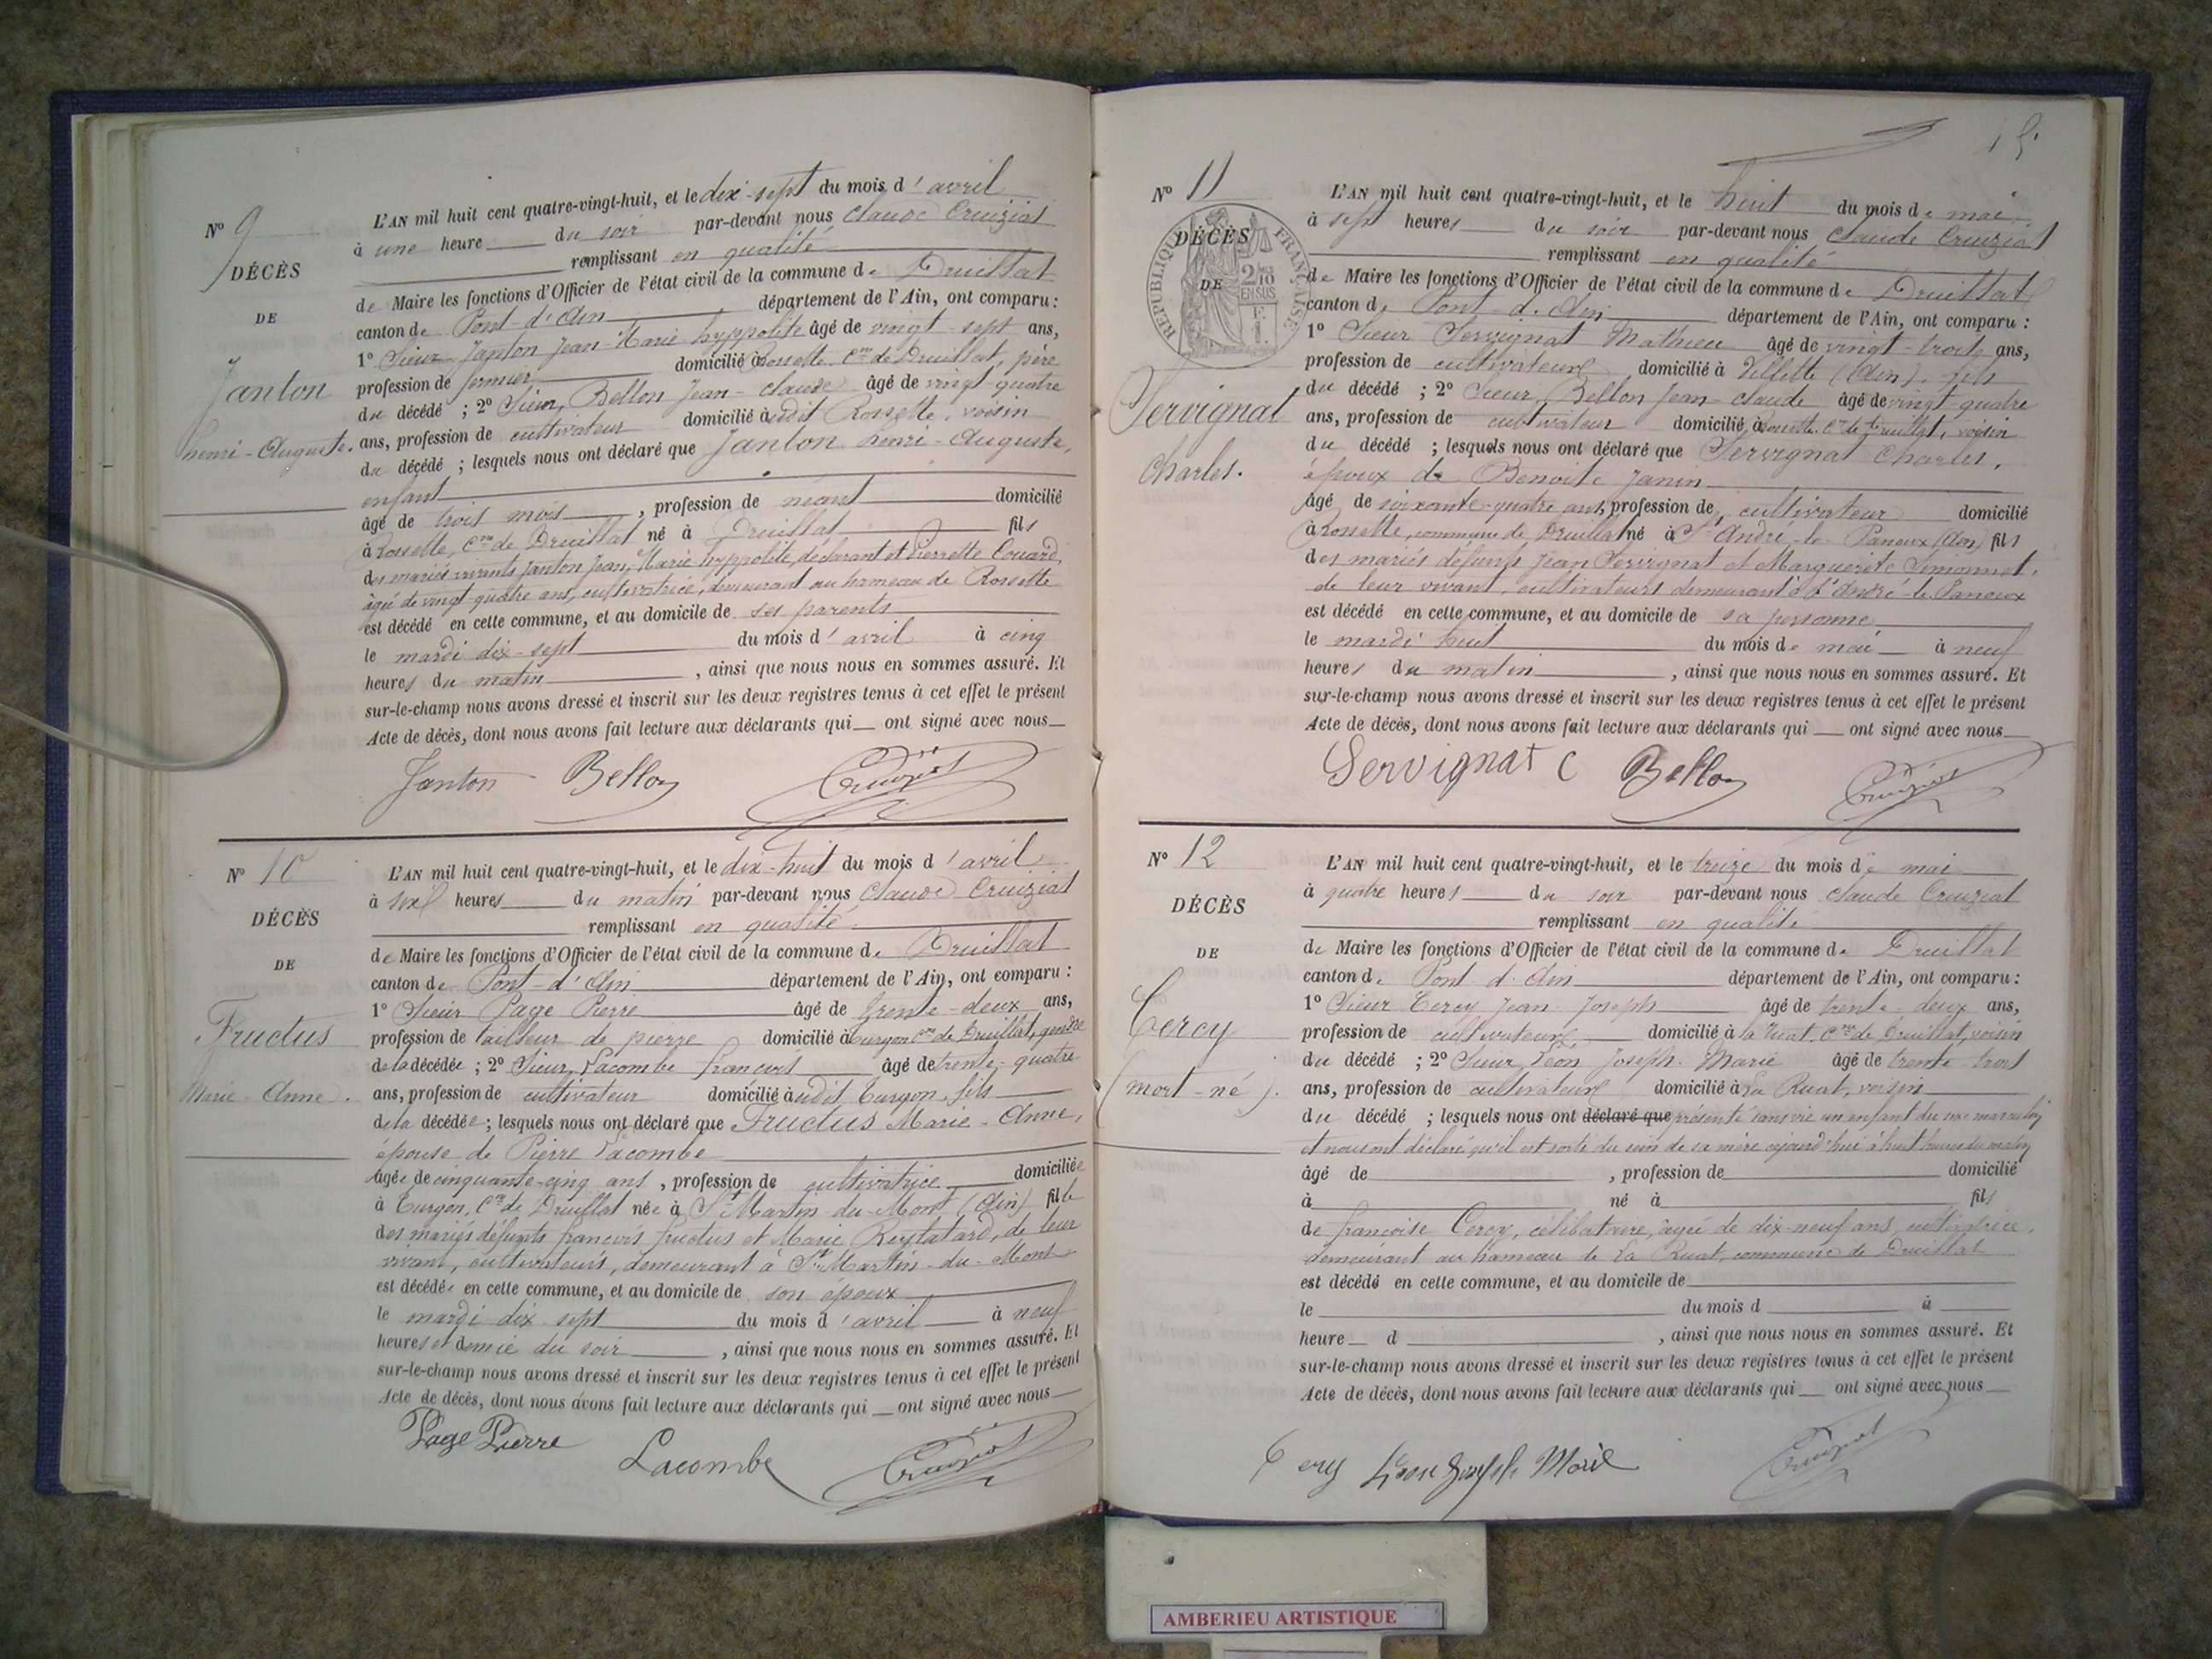 N° 9
DÉCÈS
DE
Janton
henri-Auguste.
L'AN mil huit cent quatre-vingt-huit, et le dix-sept du mois d'avril
à une heure du soir par-devant nous Claude Cruiziat
remplissant en qualité
de Maire les fonctions d'Officier de l'état civil de la commune de Druillat
canton de Pont-d'Ain département de l'Ain, ont comparu :
1° Sieur Janton Jean-Marie hyppolite âgé de vingt-sept ans,
profession de fermier, domicilié à Rossette, Cne de Druillat, père
du décédé ; 2° Sieur Bellon Jean-Claude âgé de vingt-quatre
ans, profession de cultivateur domicilié audit Rossette, voisin
du décédé ; lesquels nous ont déclaré que Janton henri-Auguste,
enfant
âgé de trois mois, profession de néant domicilié
à Rossette, Cne de Druillat né à Druillat fils
des mariés vivants Janton Jean, Marie hyppolite, déclarant et Pierrette Couard,
âgée de vingt-quatre ans, cultivatrice, demeurant au hameau de Rossette
est décédé en cette commune, et au domicile de ses parents
le mardi dix-sept du mois d'avril à cinq
heures du matin, ainsi que nous nous en sommes assuré. Et
sur-le-champ nous avons dressé et inscrit sur les deux registres tenus à cet effet le présent
Acte de décès, dont nous avons fait lecture aux déclarants qui ont signé avec nous
Janton Bellon Cruiziat
N° 10
DÉCÈS
DE
Fructus
Marie-Anne.
L'AN mil huit cent quatre-vingt-huit, et le dix-huit du mois d'avril
à six heures du matin par-devant nous Claude Cruiziat
remplissant en qualité
de Maire les fonctions d'Officier de l'état civil de la commune de Druillat
canton de Pont-d'Ain département de l'Ain, ont comparu :
1° Sieur Page Pierre âgé de trente-deux ans,
profession de tailleur de pierre domicilié à Turgon Cne de Druillat, gendre
de la décédée ; 2° Sieur Lacombe François âgé de trente-quatre
ans, profession de cultivateur domicilié audit Turgon, fils
de la décédée ; lesquels nous ont déclaré que Fructus Marie-Anne,
épouse de Pierre Lacombe
âgée de cinquante-cinq ans, profession de cultivatrice domiciliée
à Turgon, Cne de Druillat née à St Martin-du-Mont (Ain) fille
des mariés défunts françois fructus et Marie, de leur
vivant, cultivateurs, demeurant à St Martin-du-Mont
est décédée en cette commune, et au domicile de son époux
le mardi dix sept du mois d'avril à neuf
heures et demie du soir, ainsi que nous nous en sommes assuré. Et
sur-le-champ nous avons dressé et inscrit sur les deux registres tenus à cet effet le présent
Acte de décès, dont nous avons fait lecture aux déclarants qui ont signé avec nous
Page Pierre Lacombe Cruiziat
15
N° 11
DÉCÈS
DE
RÉPUBLIQUE FRANÇAISE
2/10 EN SUS
Servignat
Charles.
L'AN mil huit cent quatre-vingt-huit, et le huit du mois de mai
à sept heures du soir par-devant nous Claude Cruiziat
remplissant en qualité
de Maire les fonctions d'Officier de l'état civil de la commune de Druillat
canton de Pont-d'Ain département de l'Ain, ont comparu :
1° Sieur Servignat Mathieu âgé de vingt-trois ans,
profession de cultivateur, domicilié à Villette (Ain), fils
du décédé ; 2° Sieur Bellon Jean-Claude âgé de vingt-quatre
ans, profession de cultivateur domicilié à Rossette, Cne de Druillat, voisin
du décédé ; lesquels nous ont déclaré que Servignat Charles,
époux de Benoite Janin
âgé de soixante-quatre ans, profession de cultivateur domicilié
à Rossette, commune de Druillat né à St André-le-Panoux (Ain) fils
des mariés défunts Jean Servignat et Marguerite Simonnet,
de leur vivant, cultivateurs demeurant à St André-le-Panoux
est décédé en cette commune, et au domicile de sa personne
le mardi huit du mois de mai à neuf
heures du matin, ainsi que nous nous en sommes assuré. Et
sur-le-champ nous avons dressé et inscrit sur les deux registres tenus à cet effet le présent
Acte de décès, dont nous avons fait lecture aux déclarants qui ont signé avec nous
Servignat C Bellon Cruiziat
N° 12
DÉCÈS
DE
Cercy
(mort-né).
L'AN mil huit cent quatre-vingt-huit, et le treize du mois de mai
à quatre heures du soir par-devant nous Claude Cruiziat
remplissant en qualité
de Maire les fonctions d'Officier de l'état civil de la commune de Druillat
canton de Pont d'Ain département de l'Ain, ont comparu :
1° Sieur Cercy Jean Joseph âgé de trente-deux ans,
profession de cultivateur, domicilié à la Ruat, Cne de Druillat, voisin
du décédé ; 2° Sieur Léon Joseph-Marie âgé de trente trois
ans, profession de cultivateur domicilié à La Ruat, voisin
du décédé ; lesquels nous ont déclaré que présenté sans vie un enfant du sexe masculin
et nous ont déclaré qu'il est sorti du sein de sa mère aujourd'hui à huit heures du matin
âgé de , profession de domicilié
à né à fils
de françoise Cercy, célibataire, âgée de dix-neuf ans, cultivatrice,
demeurant au hameau de La Ruat, commune de Druillat
est décédé en cette commune, et au domicile de
le du mois d à
heure d , ainsi que nous nous en sommes assuré. Et
sur-le-champ nous avons dressé et inscrit sur les deux registres tenus à cet effet le présent
Acte de décès, dont nous avons fait lecture aux déclarants qui ont signé avec nous
Cercy Léon Joseph Marie Cruiziat
AMBERIEU ARTISTIQUE